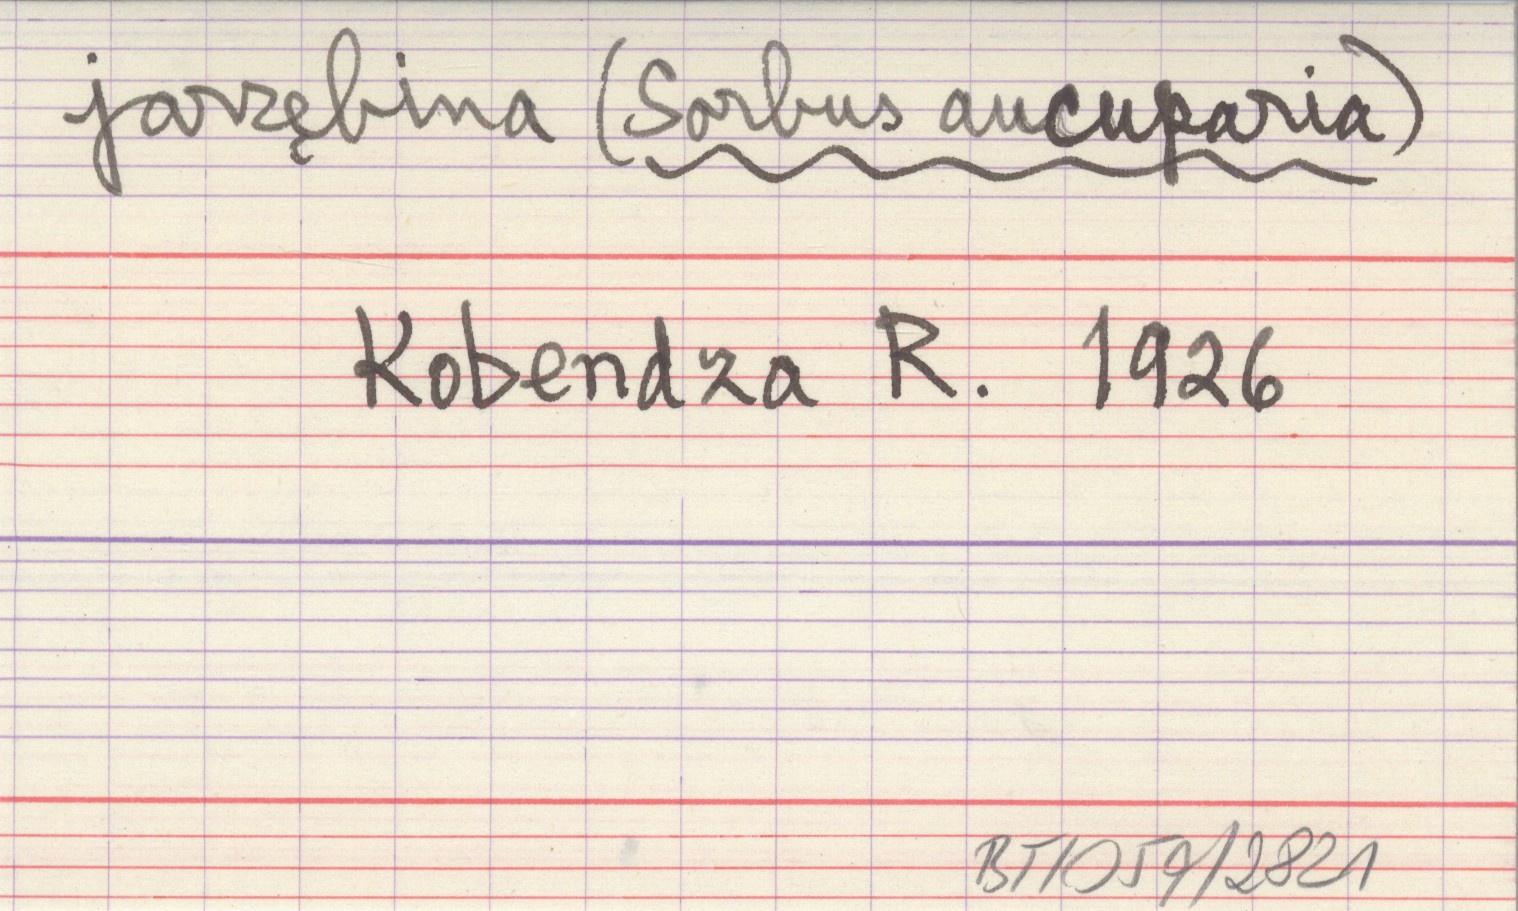 jarzębina (Sorbus aucuparia)
Kobendza R. 1926
BT/059/2821